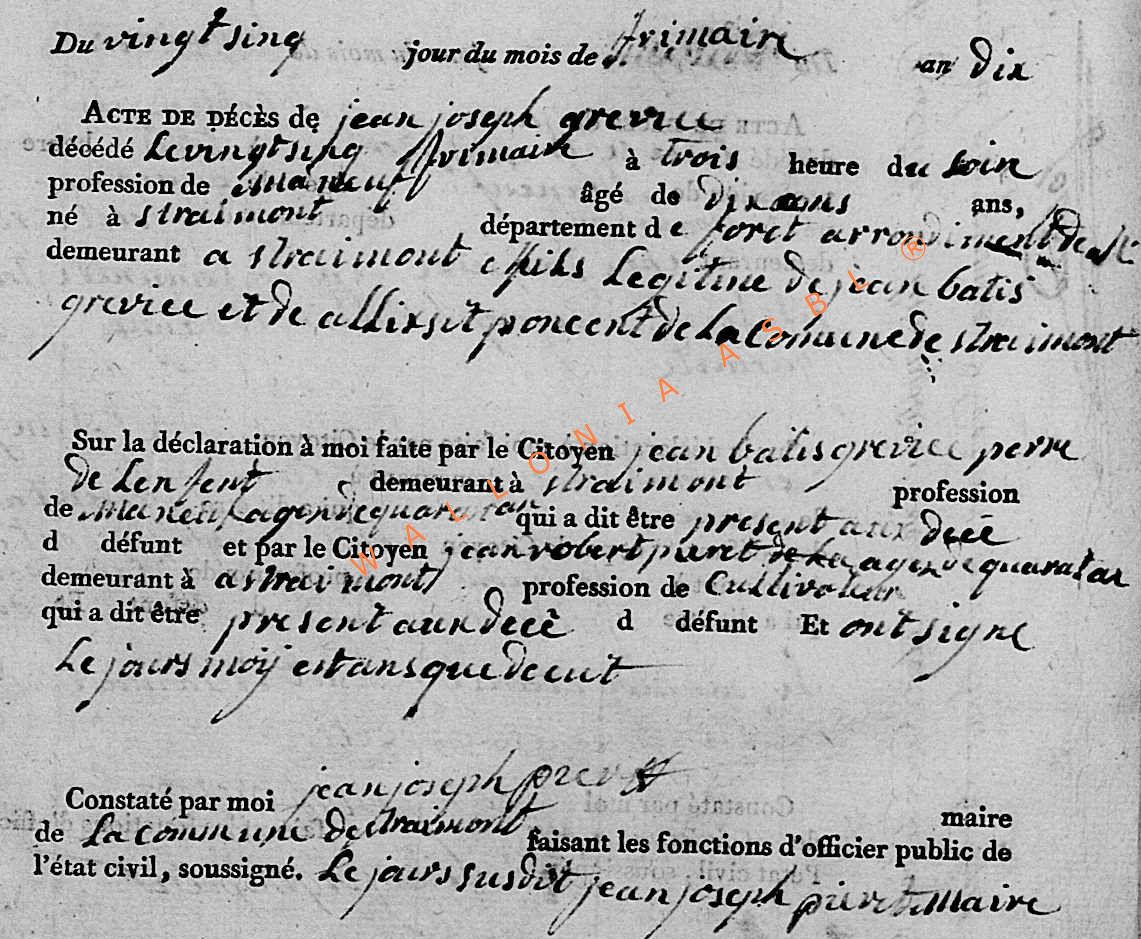 Du vingt sinq jour du mois de frimaire an dix
ACTE DE DÉCÈS de jean joseph grevice
décédé Le vingt sinq frimaire à trois heure du soir
profession de Maneuf âgé de dix ans ans,
né à straimont département de foret arrondiment de
demeurant a straimont filts Legitime de jean batis
grevice et de allixsit poncent de La Comune de straimont
Sur la déclaration à moi faite par le Citoyen jean batis grevice perre
de Lenfent demeurant à straimont profession
de Maneuf agen de quaratan qui a dit être present aux decé
d défunt et par le Citoyen jean robert piret agen de quaratan
demeurant à a straimont profession de Cultivateur
qui a dit être present aux decé d défunt Et ont signe
Le jours moij et ans que de cut
Constaté par moi jean joseph pieret maire
de La commune de straimont faisant les fonctions d'officier public de
l'état civil, soussigné. Le jours susdit jean joseph pieret Maire
WALLONIA ASBL ®